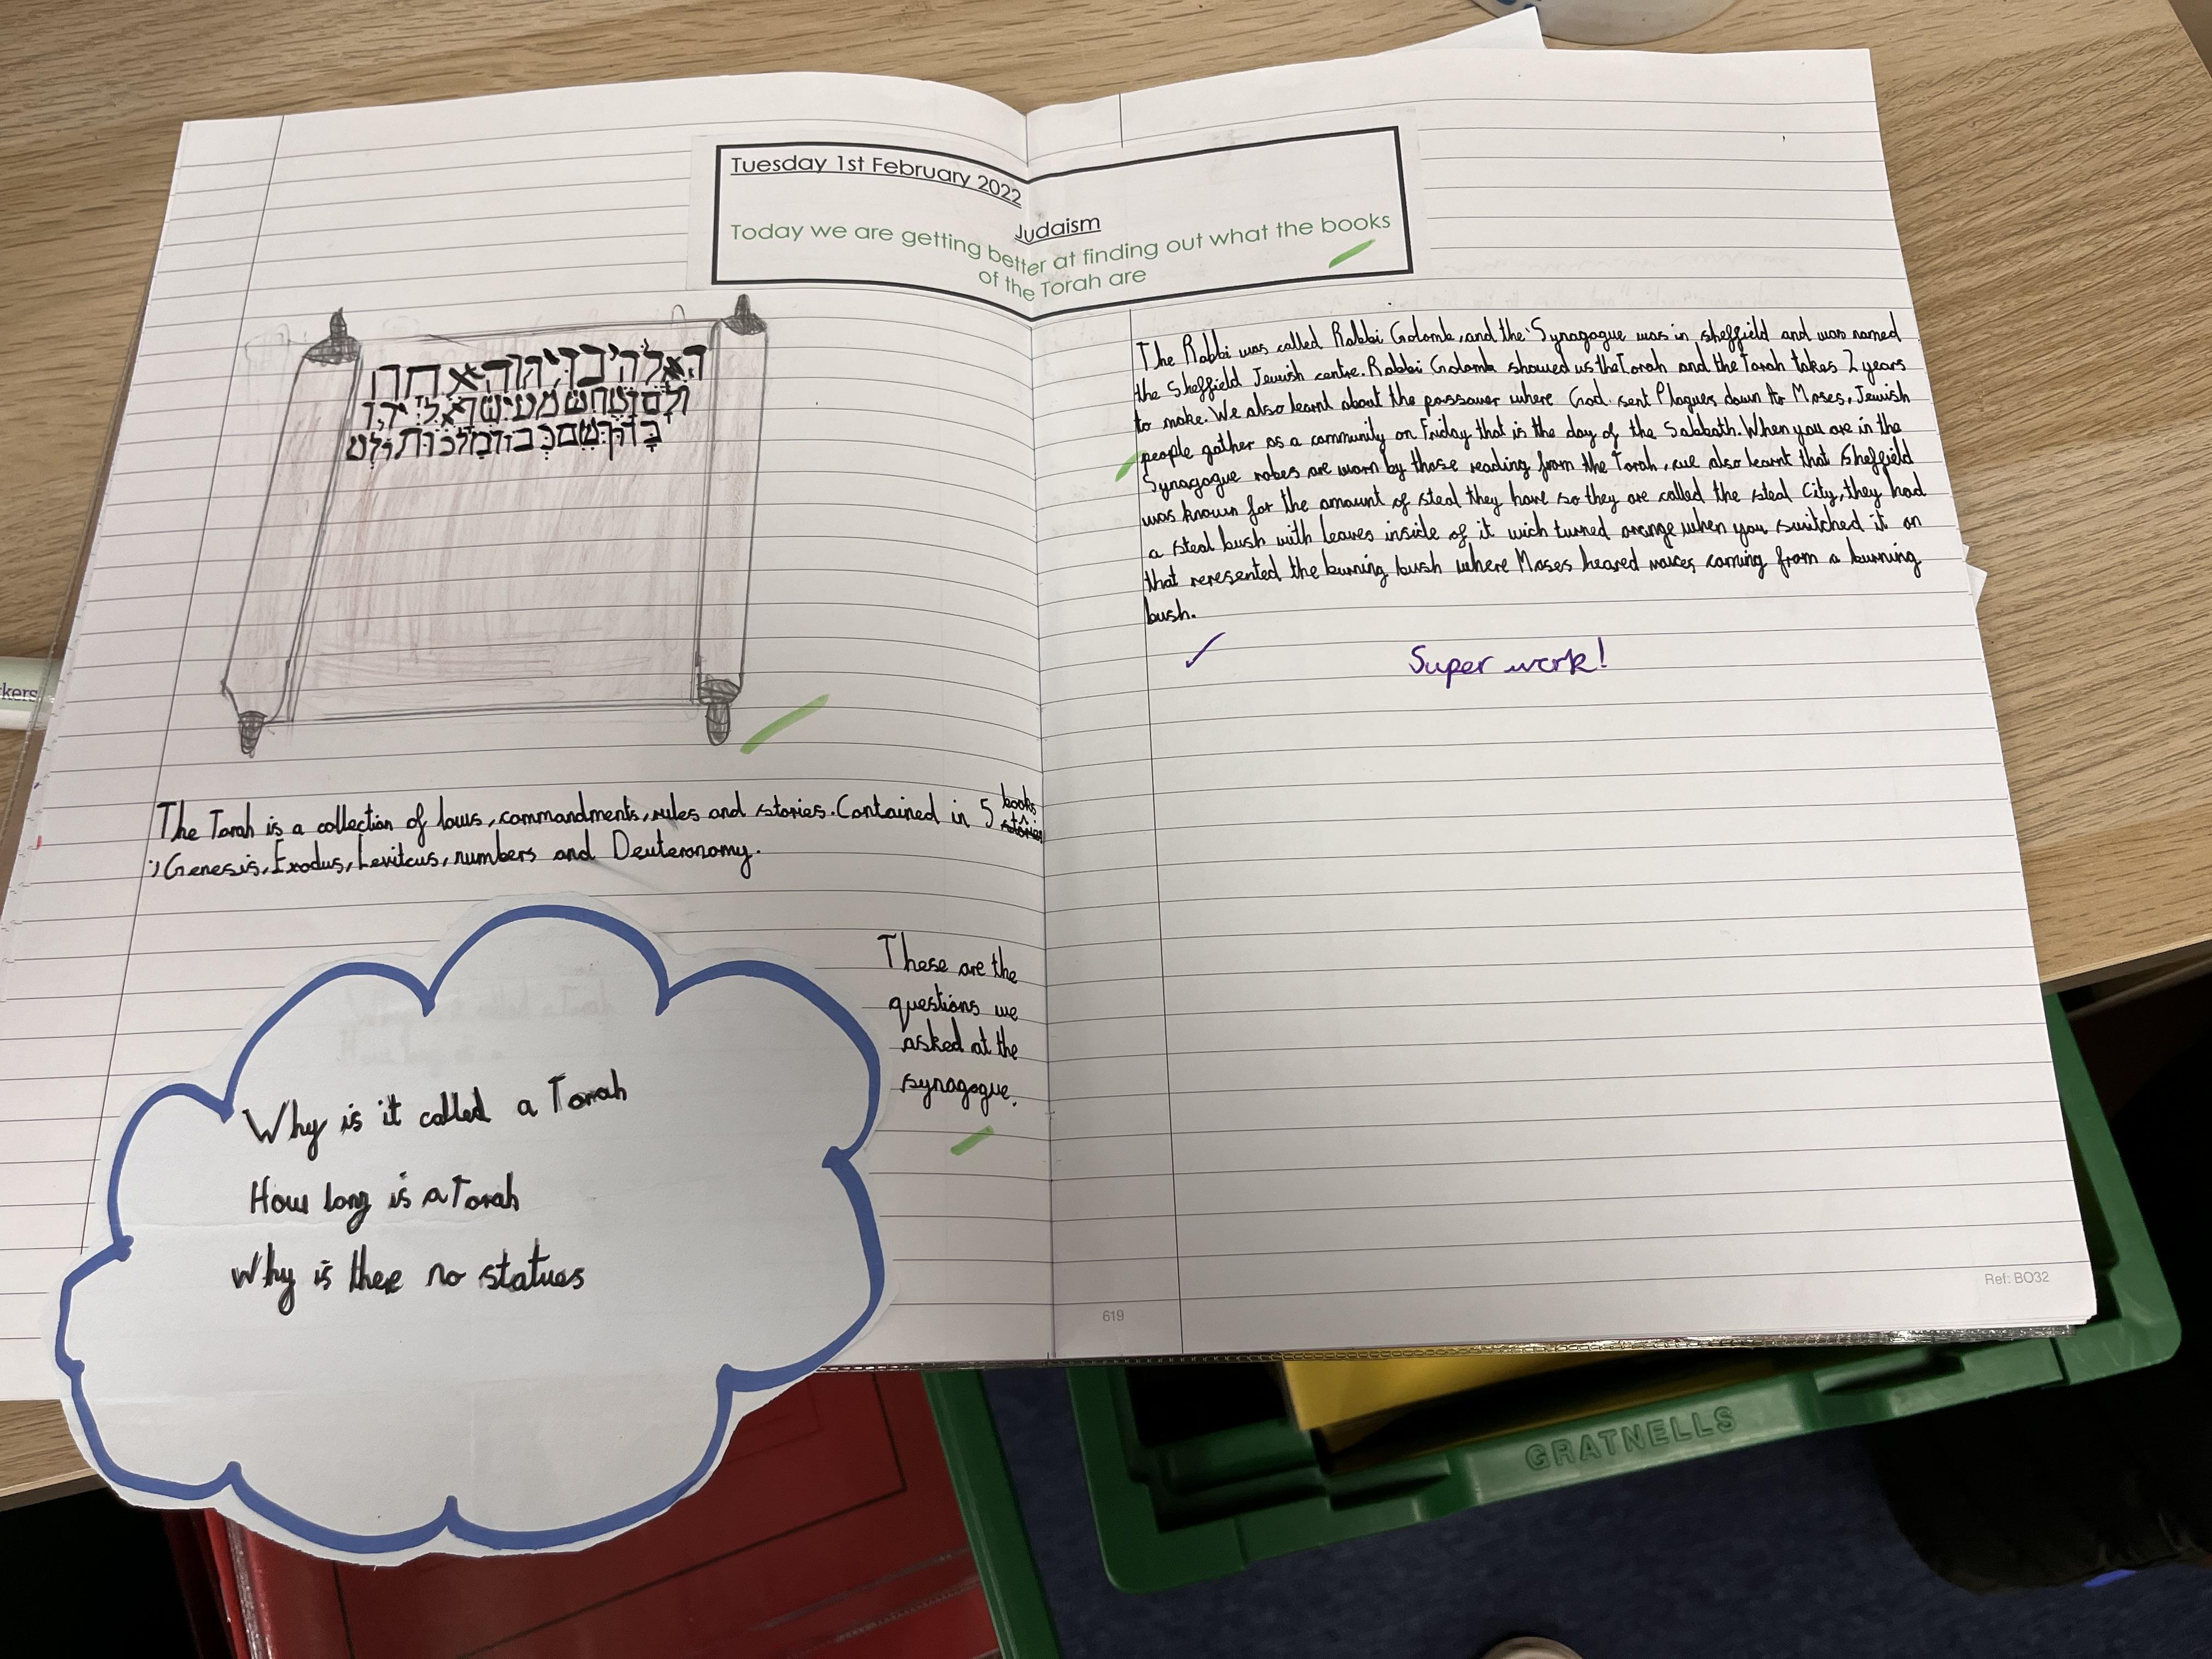 Tuesday 1st February 2022
Judaism
Today we are getting better at finding out what the books
of the Torah are
The Torah is a collection of laws, commandments, rules and stories. Contained in 5 books stories
Genesis, Exodus, Levitcus, numbers and Deuteronomy.
These are the
questions we
asked at the
synagogue.
Why is it called a Torah
How long is a Torah
Why is thee no statues
The Rabbi was called Rabbi Golomb, and the Synagogue was in sheffield and was named
the Sheffield Jewish centre. Rabbi Golomb showed us the Torah and the Torah takes 2 years
to make. We also learnt about the passover where God sent Plagues down to Moses, Jewish
people gather as a community on Friday that is the day of the Sabbath. When you are in the
Synagogue robes are worn by those reading from the Torah, we also learnt that Sheffield
was known for the amount of steal they have so they are called the steal City, they had
a steal bush with leaves inside of it wich turned orange when you switched it on
that reresented the burning bush where Moses heared voices coming from a burning
bush.
Super work!
619
Ref: BO32
GRATNELLS
kers